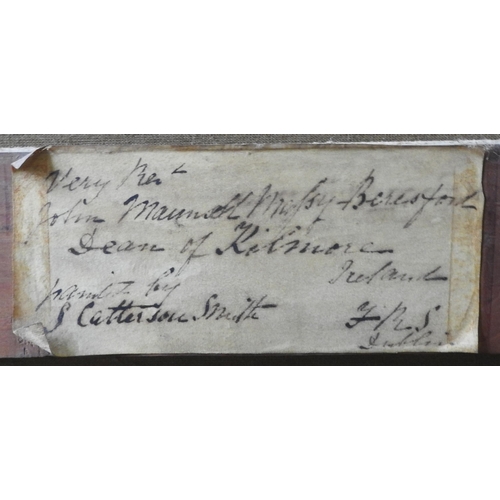 Very Revt
John Maunsell Massy Beresford
Dean of Kilmore
Ireland
paintd by
S Catterson Smith F R S
Dublin